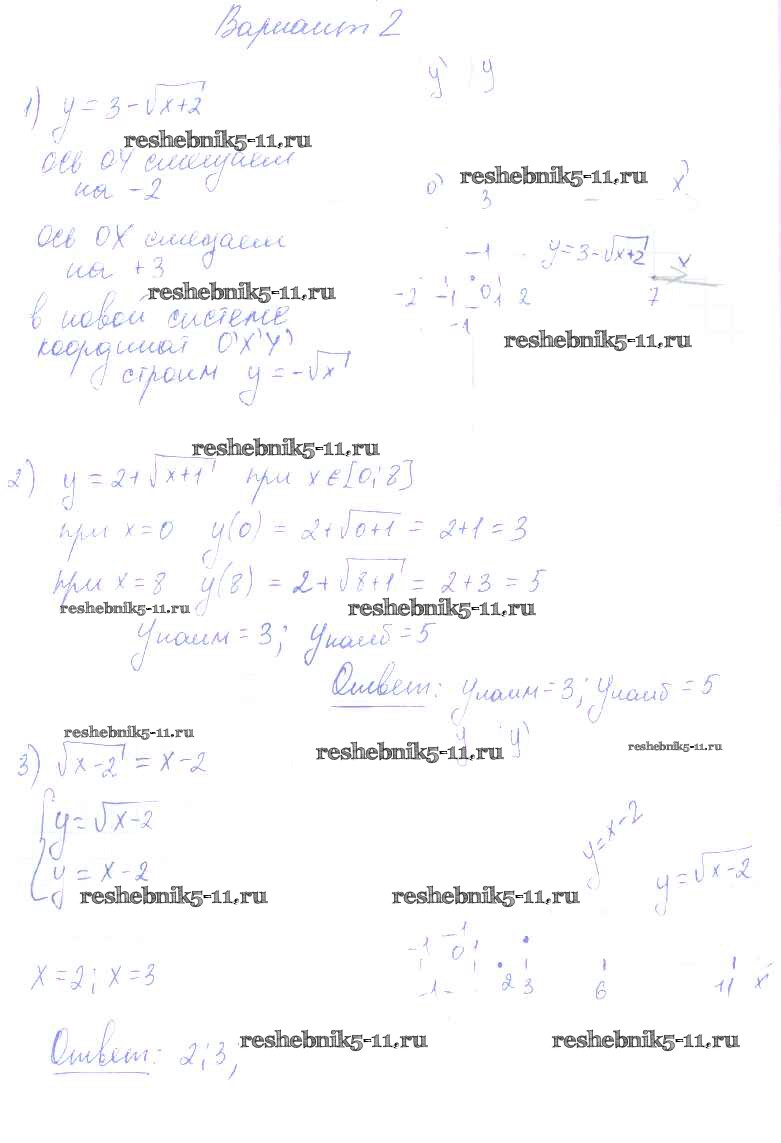 Вариант 2
1) y = 3 - √x+2
reshebnik5-11.ru
ось OY смещаем
на -2
ось OX смещаем
на +3
reshebnik5-11.ru
в новой системе
координат O'X'Y'
строим y = -√x
y' y
reshebnik5-11.ru
o' 3 x'
-1 y = 3 - √x+2 x
-2 -1 0 1 2 7
-1
reshebnik5-11.ru
reshebnik5-11.ru
2) y = 2 + √x+1 при x ∈ [0; 8]
при x = 0 y(0) = 2 + √0+1 = 2 + 1 = 3
при x = 8 y(8) = 2 + √8+1 = 2 + 3 = 5
reshebnik5-11.ru reshebnik5-11.ru
yнаим = 3; yнаиб = 5
Ответ: yнаим = 3; yнаиб = 5
reshebnik5-11.ru
3) √x-2 = x - 2
y = √x-2
y = x - 2
reshebnik5-11.ru
x = 2; x = 3
y y'
reshebnik5-11.ru reshebnik5-11.ru
y = x - 2
y = √x-2
reshebnik5-11.ru
-1 -1 0 1
-1 2 3 6 11 x'
Ответ: 2; 3,
reshebnik5-11.ru reshebnik5-11.ru